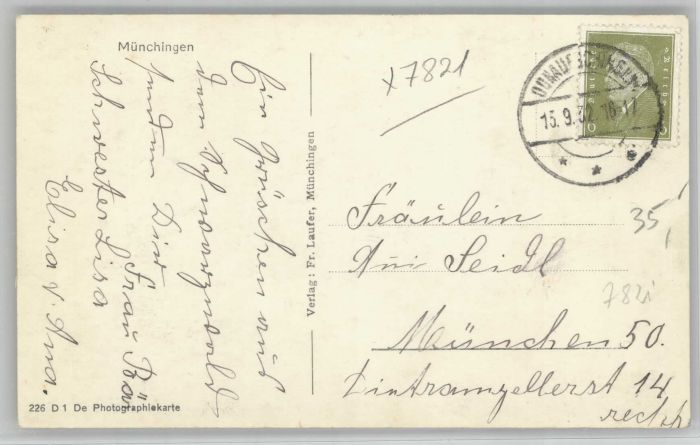 Münchingen
Ein Grüschen aus
dem Schwarzwald
senden Dir
Frau Bär
Schwester Lisa
Elisa u. Ana.
226 D 1 De Photographiekarte
Verlag: Fr. Laufer, Münchingen
x7821
DONAUESCHINGEN
15.9.32 16-17
6
Fräulein
35,
Ani Seidl
782i
München 50.
14
rechts